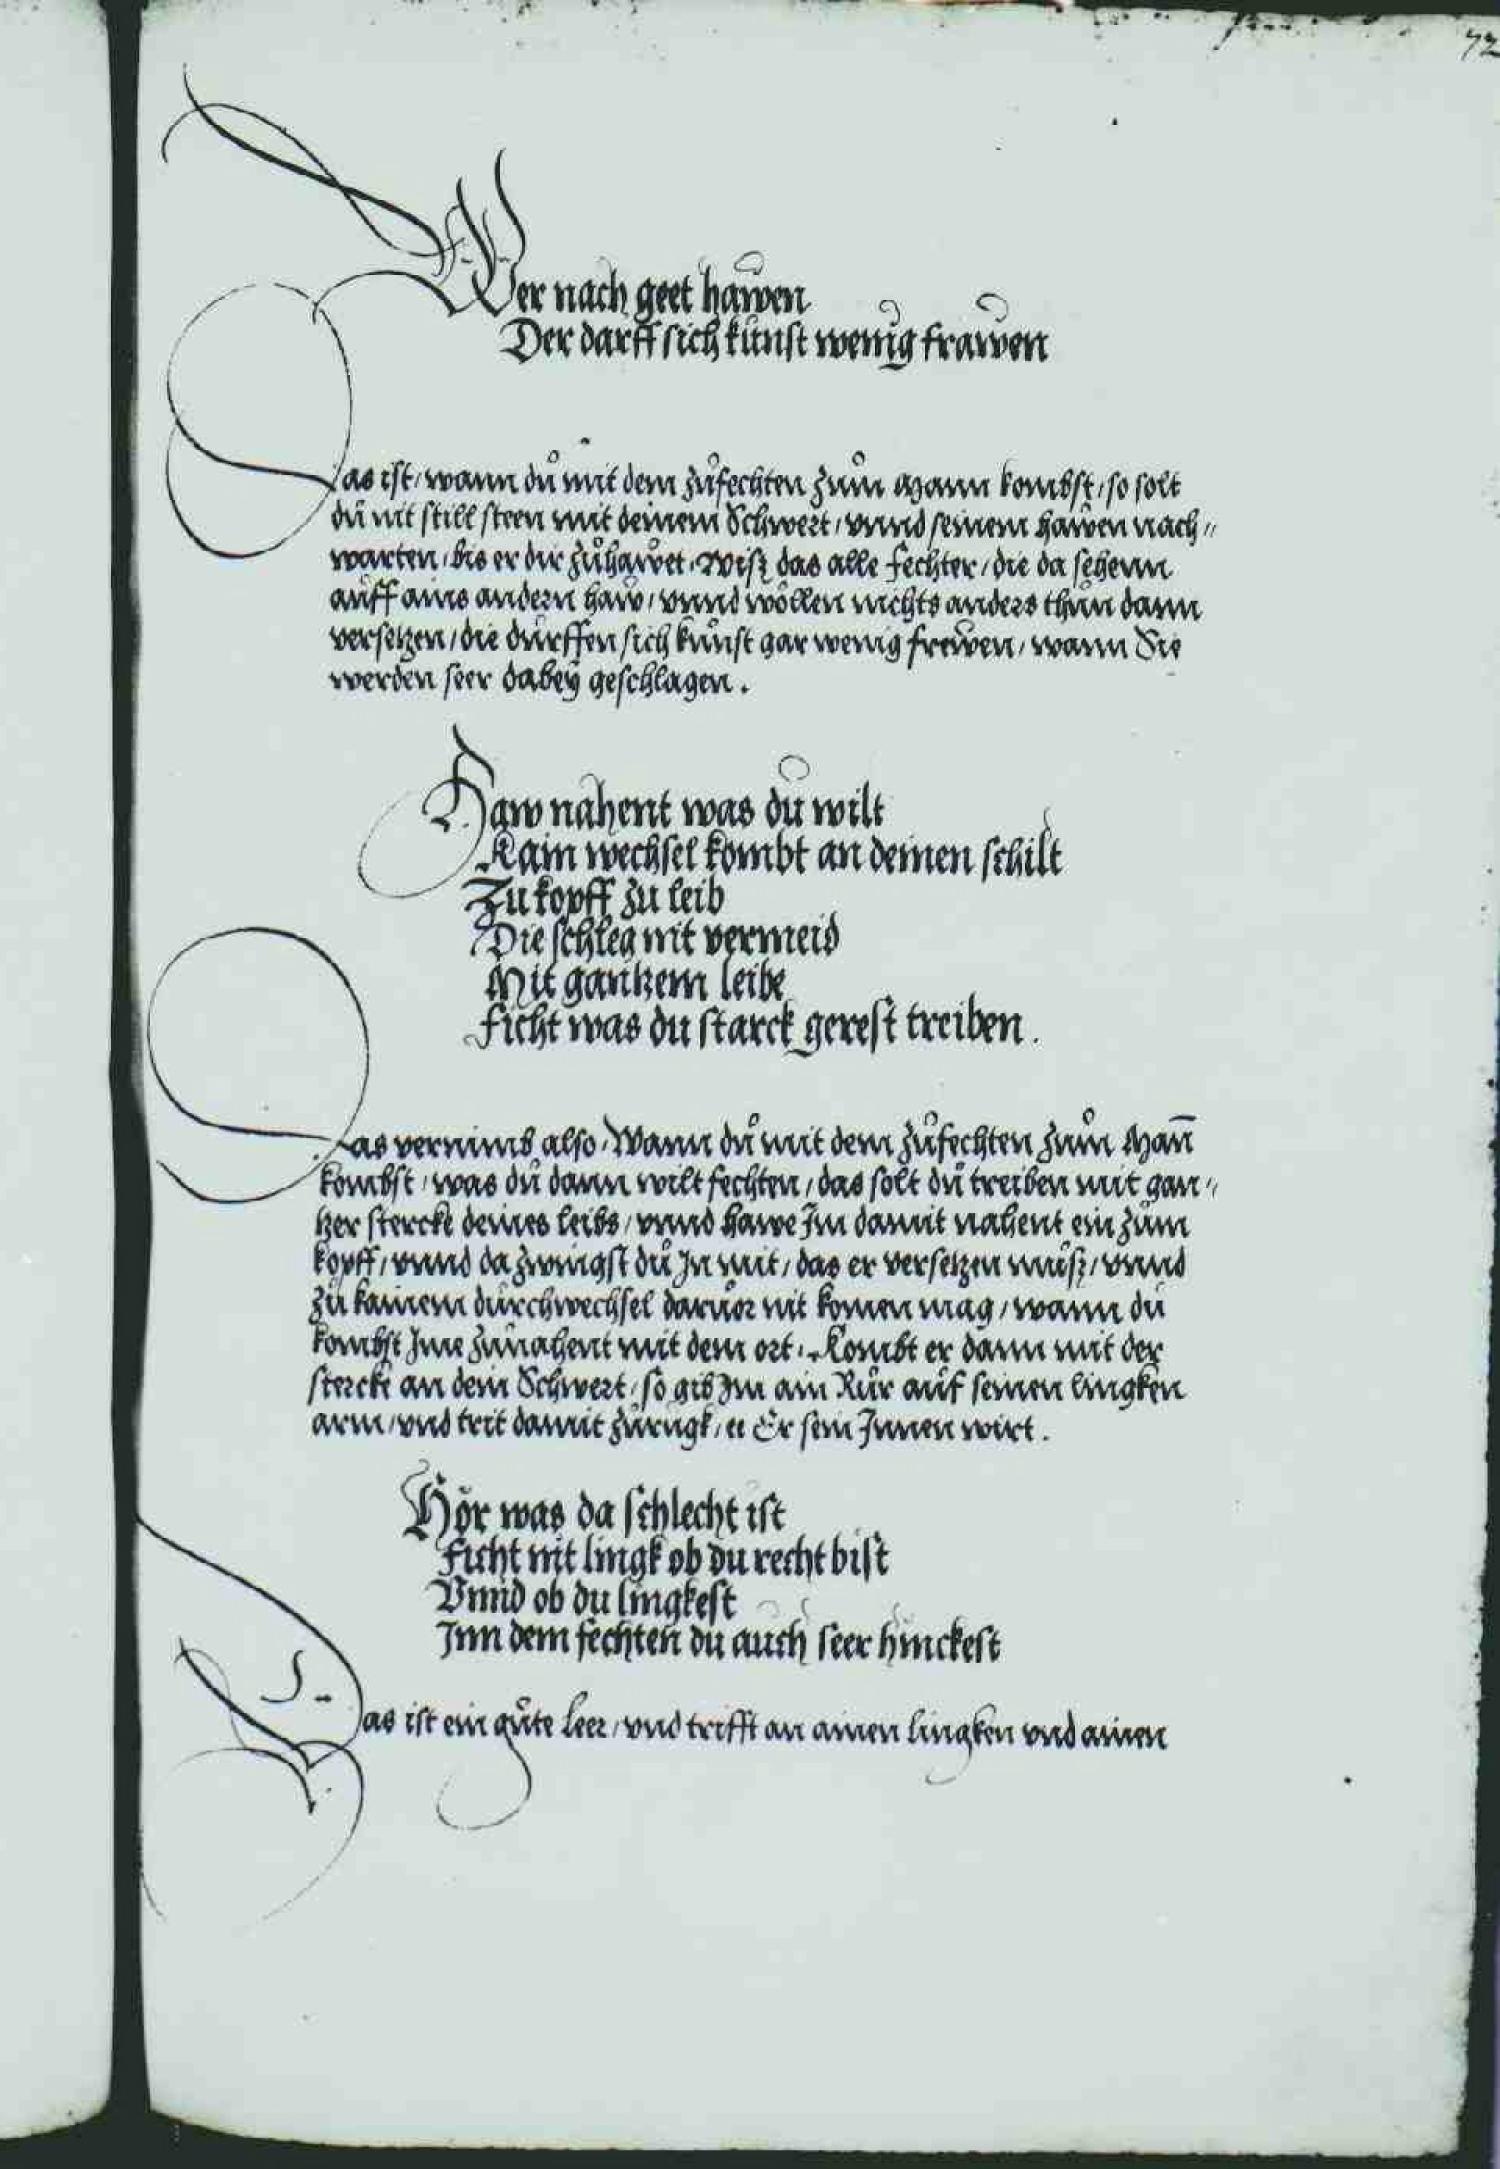 72
Wer nach geet hawen
Der darff sich kunst wenig frawen
Das ist / wann dů mit dem zůfechten zům Mann kombst / so solt
dů nit still steen mit deinem Schwert / vnnd seinem hawen nach〃
warten / bis er dir zůhawet. Wiß das alle fechter / die da sehenn
auff ains andern haw / vnnd wöllen nichts anders thůn dann
versetzen / die dürffen sich kůnst gar wenig frewen / wann Sie
werden seer dabeÿ geschlagen.
Haw nahent was dů wilt
Kain wechsel kombt an deinen schilt
Zu kopff zu leib
Die schleg nit vermeid
Mit gantzem leibe
Ficht was du starck gerest treiben.
Das vernimb also / Wann dů mit dem zůfechten zům Man̄
kombst / was dů dann wilt fechten / das solt dů treiben mit gan〃
tzer stercke deines leibs / vnnd hawe Im damit nahent ein zům
kopff / vnnd da zwingst dů In mit / das er versetzen můß / vnnd
zů kainem durchwechsel daruor nit komen mag / wann dů
kombst Ime zůnahent mit dem ort. Kombt er dann mit der
stercke an dein Schwert / so gib Im ain Růr auf seinen lingken
arm / vnd trit damit zůrugk / ee Er sein Innen wirt.
Hör was da schlecht ist
Ficht nit lingk ob du recht bist
Vnnd ob du lingkest
Inn dem fechten du auch seer hinckest
Das ist ein gůte leer / vnd trifft an ainen lingken vnd ainen